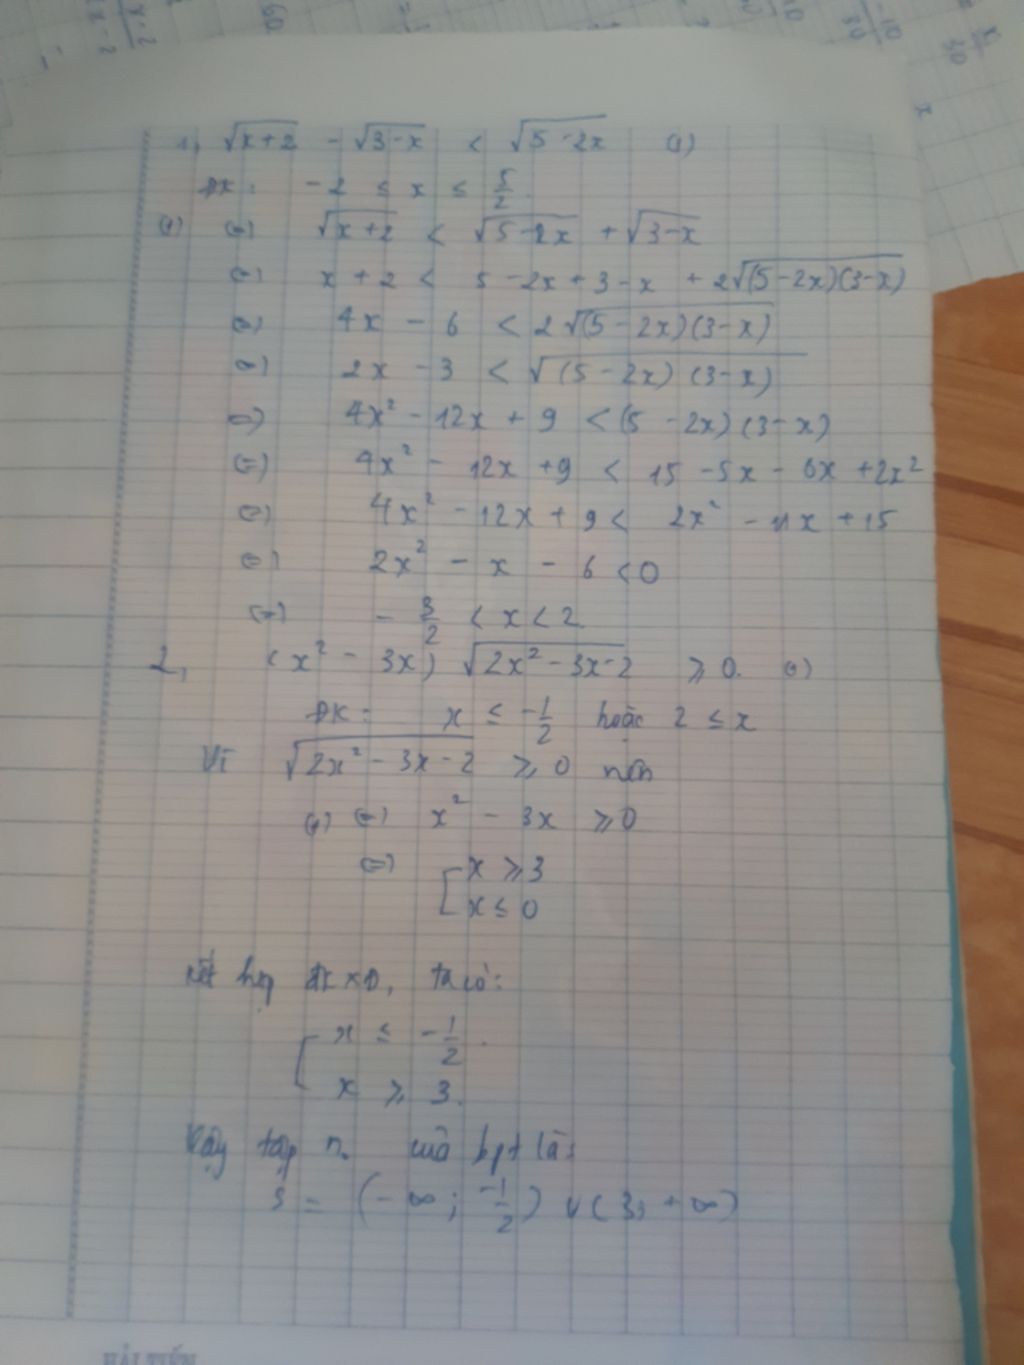 1, √(x+2) - √(3-x) < √(5-2x) (1)
ĐK: -2 ≤ x ≤ 5/2.
(1) (=) √(x+2) < √(5-2x) + √(3-x)
(=) x + 2 < 5 - 2x + 3 - x + 2√((5-2x)(3-x))
(=) 4x - 6 < 2√((5-2x)(3-x))
(=) 2x - 3 < √((5-2x)(3-x))
(=) 4x² - 12x + 9 < (5 - 2x)(3-x)
(=) 4x² - 12x + 9 < 15 - 5x - 6x + 2x²
(=) 4x² - 12x + 9 < 2x² - 11x + 15
(=) 2x² - x - 6 < 0
(=) - 3/2 < x < 2.
2, (x² - 3x) √(2x² - 3x - 2) ⩾ 0. (1)
ĐK: x ≤ -1/2 hoặc 2 ≤ x
Vì √(2x² - 3x - 2) ⩾ 0 nên
(1) (=) x² - 3x ⩾ 0
(=) [ x ⩾ 3
x ≤ 0
Kết hợp ĐKXĐ, ta có:
[ x ≤ -1/2.
x ⩾ 3.
Vậy tập n. của bpt là:
S = (-∞; -1/2) ∪ (3; +∞)
HẢI TIẾN